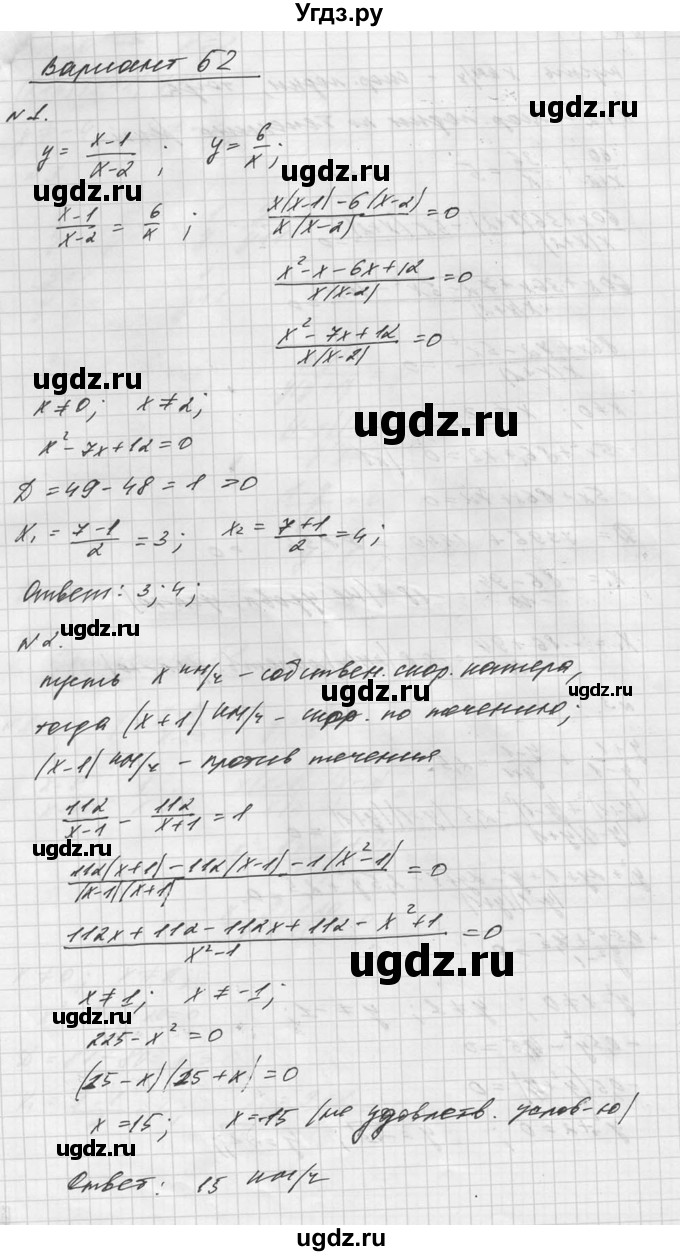 Угдз.ру
Вариант 62
ugdz.ru
N1.
y = (x-1)/(x-2) ; y = 6/x ;
ugdz.ru ugdz.ru
(x-1)/(x-2) = 6/x ; (x(x-1)-6(x-2))/(x(x-2)) = 0
(x²-x-6x+12)/(x(x-2)) = 0
(x²-7x+12)/(x(x-2)) = 0
ugdz.ru
x≠0; x≠2;
ugdz.ru
x²-7x+12=0
D=49-48=1 >0
ugdz.ru
x₁ = (7-1)/2 = 3; x₂ = (7+1)/2 = 4;
Ответ: 3; 4;
ugdz.ru
N2.
пусть x км/ч - собствен. скор. катера,
ugdz.ru
тогда (x+1) км/ч - скор. по течению;
(x-1) км/ч - против течения
112/(x-1) - 112/(x+1) = 1
ugdz.ru
(112(x+1)-112(x-1)-1(x²-1))/((x-1)(x+1)) = 0
(112x+112-112x+112-x²+1)/(x²-1) = 0
ugdz.ru
x≠1; x≠-1;
ugdz.ru
225-x²=0
(15-x)(15+x)=0
x=15; x=-15 (не удовлетв. услов-ю)
ugdz.ru
Ответ: 15 км/ч
ugdz.ru